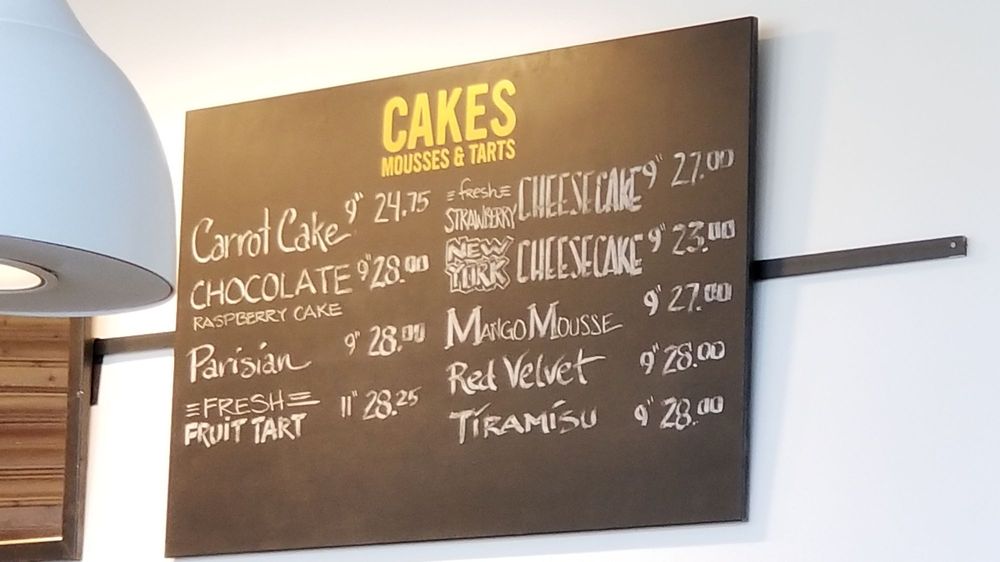 CAKES
MOUSSES & TARTS
Carrot Cake 9" 24.75
CHOCOLATE 9" 28.00
RASPBERRY CAKE
Parisian 9" 28.00
FRESH
FRUIT TART 11" 28.25
fresh
STRAWBERRY CHEESECAKE 9" 27.00
NEW
YORK CHEESECAKE 9" 23.00
MANGO MOUSSE 9" 27.00
Red Velvet 9" 28.00
TIRAMISU 9" 28.00